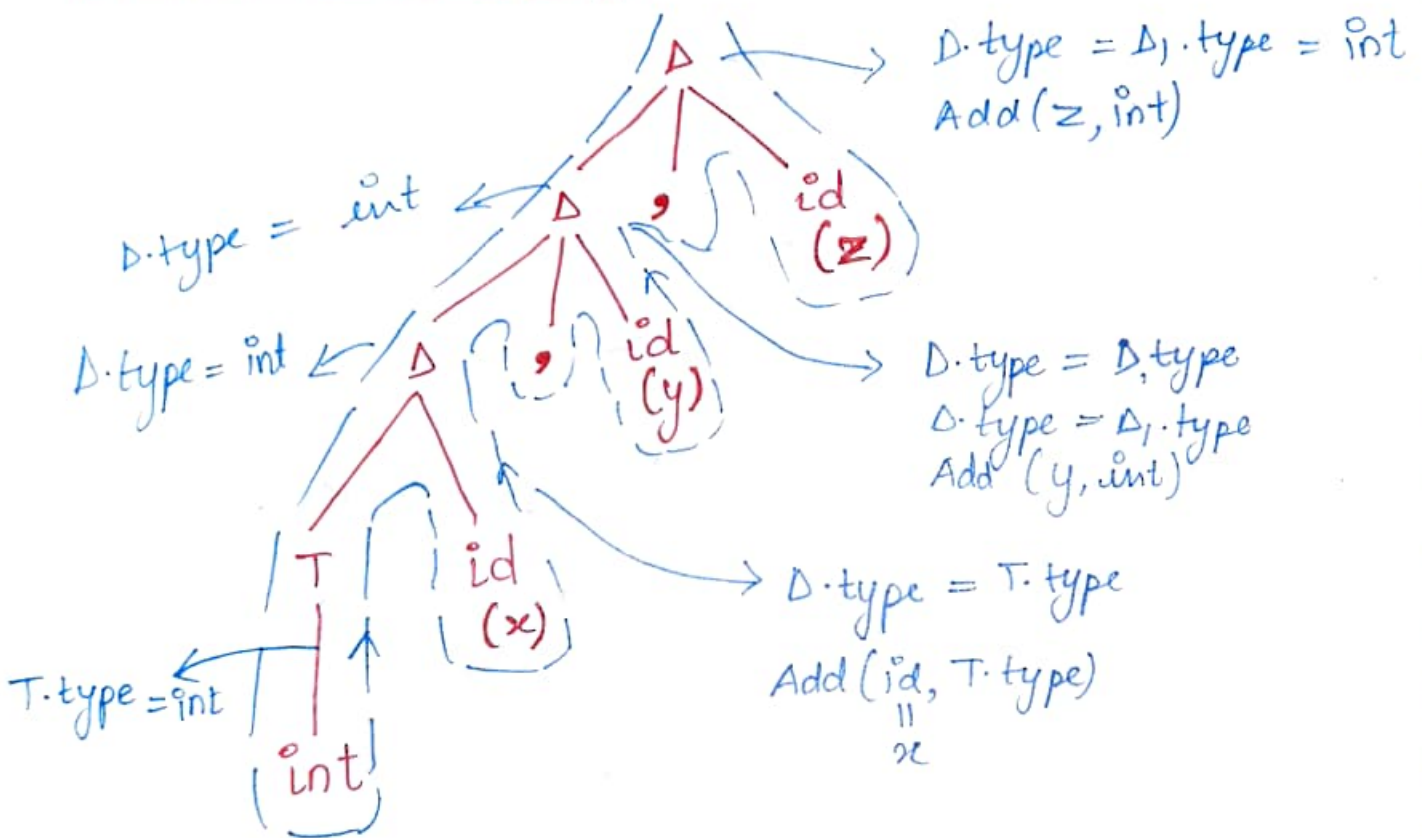 D
D.type = D₁.type = int
Add(z, int)
D.type = int
D
,
id
(z)
D.type = int
D
,
id
(y)
D.type = D₁type
D.type = D₁.type
Add (y, int)
T
id
(x)
D.type = T.type
Add(id, T.type)
||
x
T.type = int
int